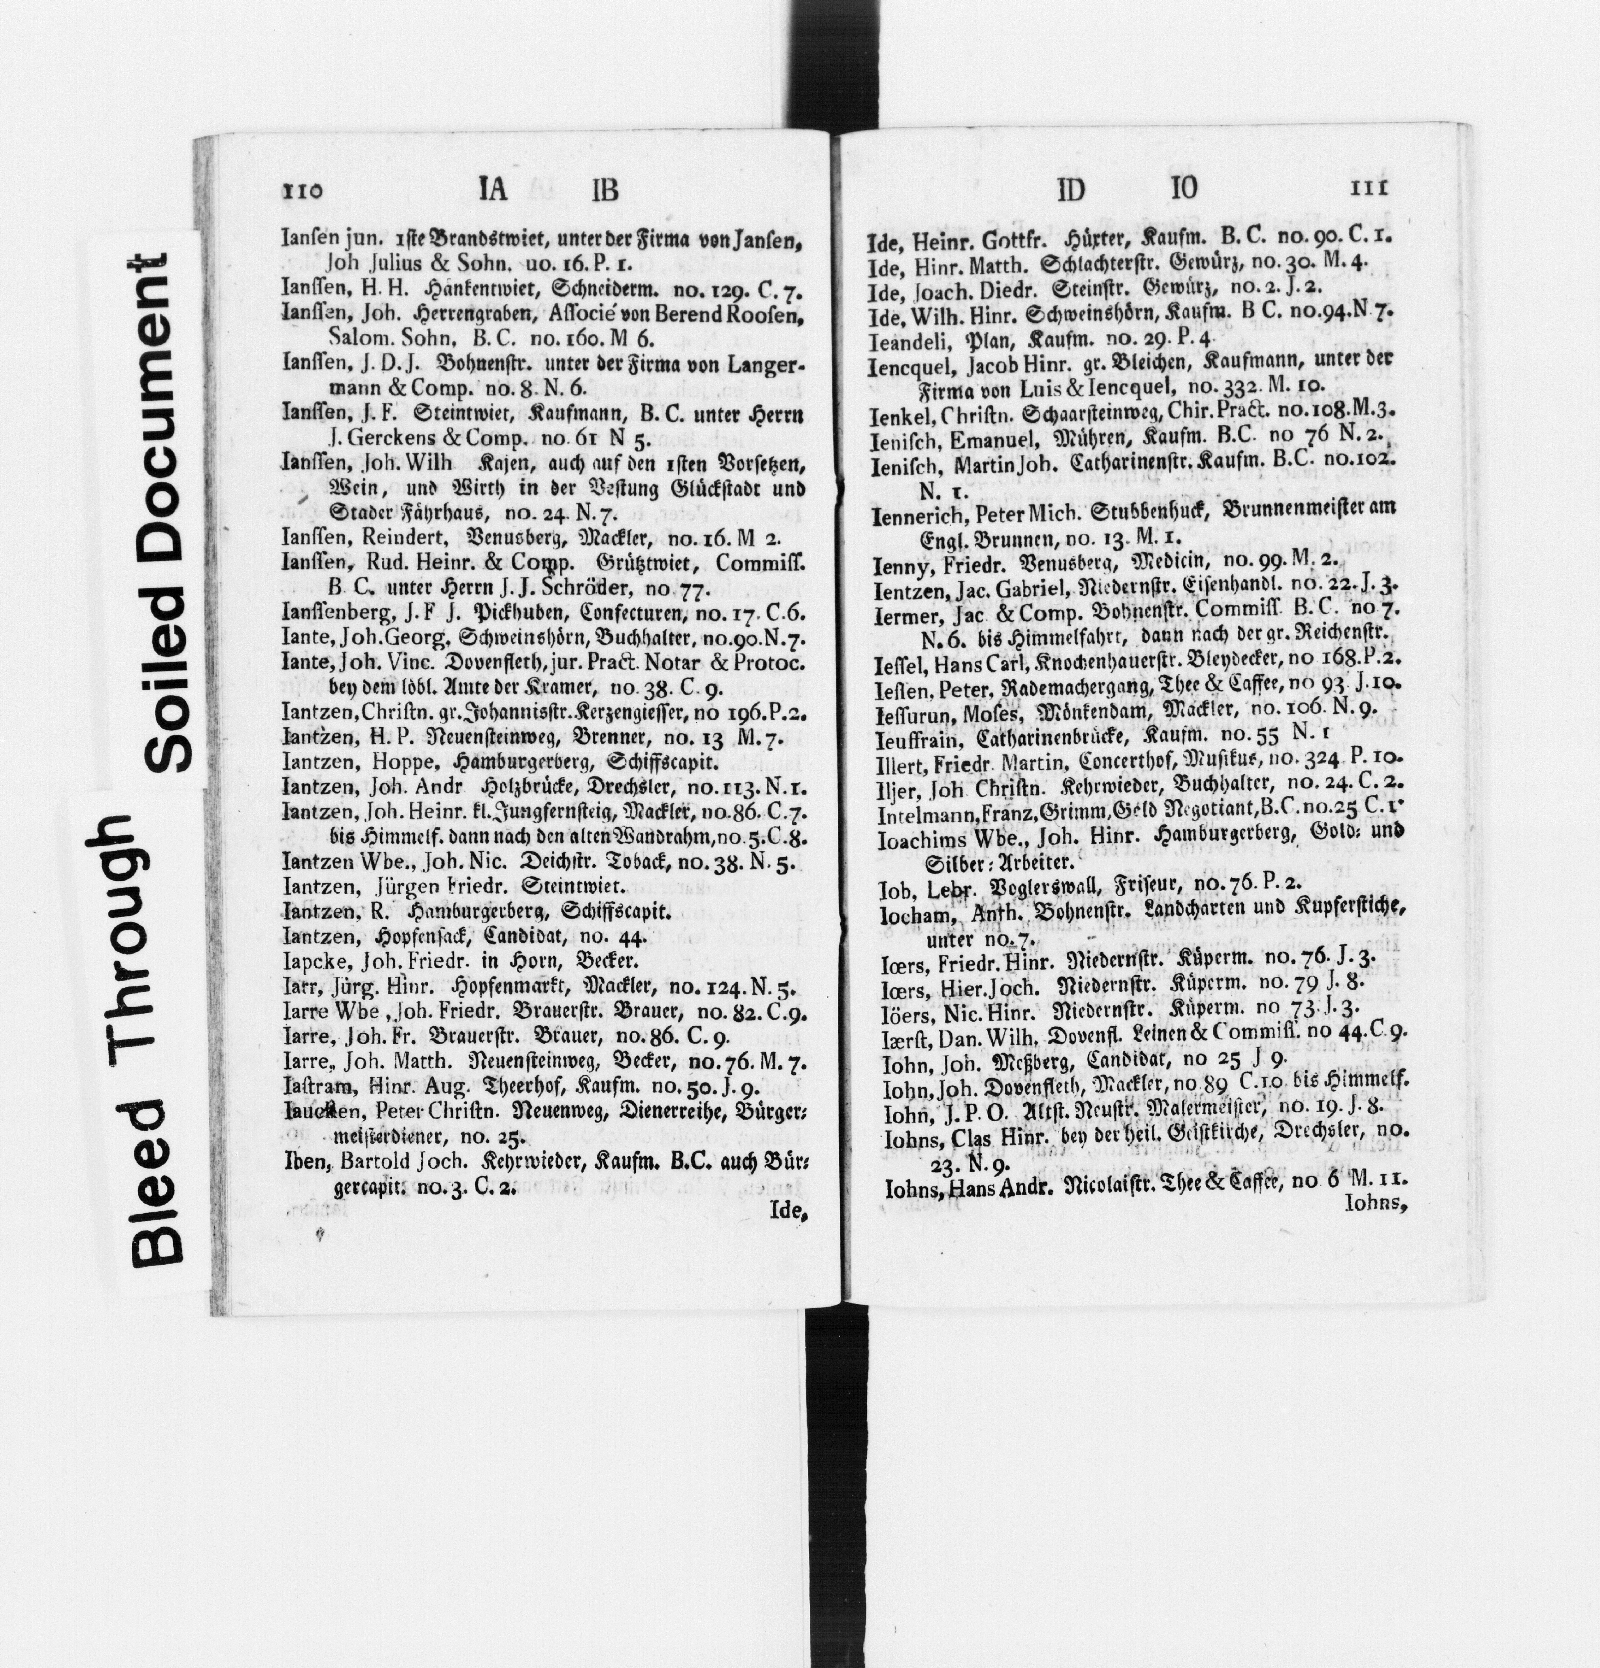 Bleed Through Soiled Document
110 IA IB
Iansen jun. 1ste Brandstwiet, unter der Firma von Jansen,
Joh Julius & Sohn. uo. 16. P. 1.
Ianssen, H. H. Hänkentwiet, Schneiderm. no. 129. C. 7.
Ianssen, Joh. Herrengraben, Associé von Berend Roosen,
Salom. Sohn, B. C. no. 160. M 6.
Ianssen, J. D. J. Bohnenstr. unter der Firma von Langer-
mann & Comp. no. 8. N. 6.
Ianssen, J. F. Steintwiet, Kaufmann, B. C. unter Herrn
J. Gerckens & Comp. no. 61 N 5.
Ianssen, Joh. Wilh Kajen, auch auf den 1sten Vorsetzen,
Wein, und Wirth in der Vestung Glückstadt und
Stader Fährhaus, no. 24. N. 7.
Ianssen, Reindert, Venusberg, Mackler, no. 16. M 2.
Ianssen, Rud. Heinr. & Comp. Grütztwiet, Commiss.
B. C. unter Herrn J. J. Schröder, no. 77.
Ianssenberg, J. F J. Pickhuben, Confecturen, no. 17. C. 6.
Iante, Joh. Georg, Schweinshörn, Buchhalter, no. 90. N. 7.
Iante, Joh. Vinc. Dovenfleth, jur. Pract. Notar & Protoc.
bey dem löbl. Amte der Kramer, no. 38. C. 9.
Iantzen, Christn. gr. Johannisstr. Kerzengiesser, no 196. P. 2.
Iantzen, H. P. Neuensteinweg, Brenner, no. 13 M. 7.
Iantzen, Hoppe, Hamburgerberg, Schiffscapit.
Iantzen, Joh. Andr Holzbrücke, Drechsler, no. 113. N. 1.
Iantzen, Joh. Heinr. kl. Jungfernsteig, Mackler, no. 86. C. 7.
bis Himmelf. dann nach den alten Wandrahm, no. 5. C. 8.
Iantzen Wbe., Joh. Nic. Deichstr. Toback, no. 38. N. 5.
Iantzen, Jürgen Friedr. Steintwiet.
Iantzen, R. Hamburgerberg, Schiffscapit.
Iantzen, Hopfensack, Candidat, no. 44.
Iapcke, Joh. Friedr. in Horn, Becker.
Iarr, Jürg. Hinr. Hopfenmarkt, Mackler, no. 124. N. 5.
Iarre Wbe, Joh. Friedr. Brauerstr. Brauer, no. 82. C. 9.
Iarre, Joh. Fr. Brauerstr. Brauer, no. 86. C. 9.
Iarre, Joh. Matth. Neuensteinweg, Becker, no. 76. M. 7.
Iastram, Hinr. Aug. Theerhof, Kaufm. no. 50. J. 9.
Peter Christn. Neuenweg, Dienerreihe, Bürger-
meisterdiener, no. 25.
Iben, Bartold Joch. Kehrwieder, Kaufm. B.C. auch Bür-
gercapit. no. 3. C. 2.
Ide,
ID IO 111
Ide, Heinr. Gottfr. Hüxter, Kaufm. B. C. no. 90. C. 1.
Ide, Hinr. Matth. Schlachterstr. Gewürz, no. 30. M. 4.
Ide, Joach. Diedr. Steinstr. Gewürz, no. 2. J. 2.
Ide, Wilh. Hinr. Schweinshörn, Kaufm. B C. no. 94. N 7.
Ieandeli, Plan, Kaufm. no. 29. P. 4.
Iencquel, Jacob Hinr. gr. Bleichen, Kaufmann, unter der
Firma von Luis & Iencquel, no. 332. M. 10.
Ienkel, Christn. Schaarsteinweg, Chir. Pract. no. 108. M. 3.
Ienisch, Emanuel, Mühren, Kaufm. B.C. no 76 N. 2.
Ienisch, Martin Joh. Catharinenstr. Kaufm. B.C. no. 102.
N. 1.
Iennerich, Peter Mich. Stubbenhuck, Brunnenmeister am
Engl. Brunnen, no. 13. M. 1.
Ienny, Friedr. Venusberg, Medicin, no. 99. M. 2.
Ientzen, Jac. Gabriel, Niedernstr. Eisenhandl. no. 22. J. 3.
Iermer, Jac & Comp. Bohnenstr. Commiss. B. C. no 7.
N. 6. bis Himmelfahrt, dann nach der gr. Reichenstr.
Iessel, Hans Carl, Knochenhauerstr. Bleydecker, no 168. P. 2.
Iessen, Peter, Rademachergang, Thee & Caffee, no 93 J. 10.
Iessurun, Moses, Mönkendam, Mackler, no. 106. N. 9.
Ieuffrain, Catharinenbrücke, Kaufm. no. 55 N. 1
Illert, Friedr Martin, Concerthof, Musikus, no. 324 P. 10.
Iljer, Joh Christn. Kehrwieder, Buchhalter, no. 24. C. 2.
Intelmann, Franz, Grimm, Geld Negotiant, B.C. no. 25 C. 1.
Ioachims Wbe., Joh. Hinr. Hamburgerberg, Gold- und
Silber-Arbeiter.
Iob, Lebr. Voglerswall, Friseur, no. 76. P. 2.
Iocham, Anth. Bohnenstr. Landcharten und Kupferstiche,
unter no. 7.
Iœrs, Friedr. Hinr. Niedernstr. Küperm. no. 76. J. 3.
Iœrs, Hier. Joch. Niedernstr. Küperm. no. 79 J. 8.
Iöers, Nic. Hinr. Niedernstr. Küperm. no 73. J. 3.
Iærst, Dan. Wilh. Dovenfl. Leinen & Commiss. no 44. C. 9.
Iohn, Joh. Meßberg, Candidat, no 25 J 9.
Iohn, Joh. Dovenfleth, Mackler, no. 89 C. 10 bis Himmelf.
Iohn, J. P. O. Altst. Neustr. Malermeister, no. 19. J. 8.
Iohns, Clas Hinr. bey der heil. Geistkirche, Drechsler, no.
23. N. 9.
Iohns, Hans Andr. Nicolaistr. Thee & Caffee, no 6 M. 11.
Iohns,